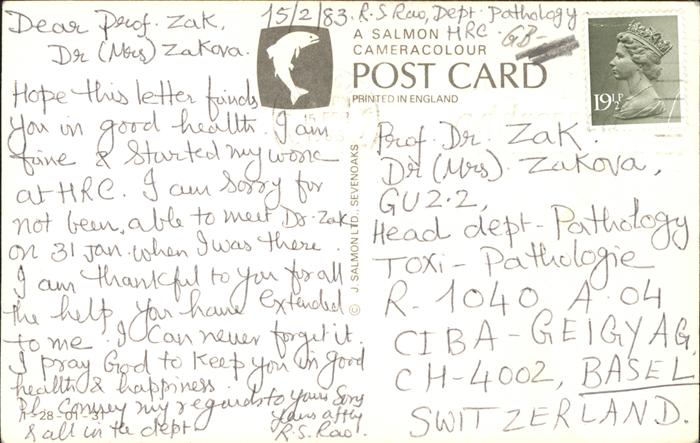 Dear Prof. Zak,
Dr (Mrs) Zakova.
15/2/83.
Hope this letter finds
You in good health. I am
fine & Started my work
at HRC. I am Sorry for
not been, able to meet Dr. Zak
on 31 Jan. when I was there.
I am thankful to You for all
the help You have Extended
to me. I Can never forget it.
I pray God to Keep you in good
health & happiness.
Pl. Convey my regards to Yours Sons
& all in the dept
Yours affly
R.S. Rao.
A-28-01-
R.S Rao, Dept. Pathology
HRC.
GB-
A SALMON
CAMERACOLOUR
POST CARD
PRINTED IN ENGLAND
© J. SALMON LTD., SEVENOAKS
19½P
Prof. Dr. Zak.
Dr (Mrs). Zakova,
GU2.2,
Head dept-Pathology
Toxi-Pathologie
R-1040 A.04
CIBA-GEIGY AG
CH-4002, BASEL
SWITZERLAND.